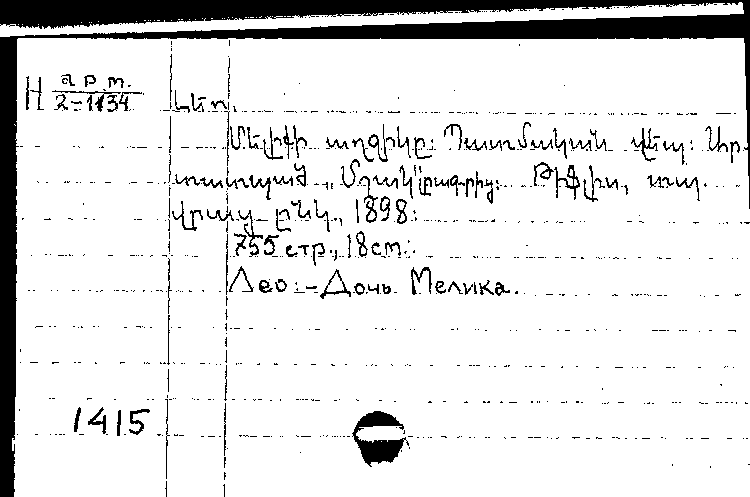 H арт.
2-1134
Լեո.
Մելիքի աղջիկը: Պատմական վեպ: Ար-
տատպած „Մշակ" լրագրից: Թիֆլիս, տպ.
վրաց ընկ., 1898:
755 стр., 18cm:
Лео:-Дочь Мелика.
1415